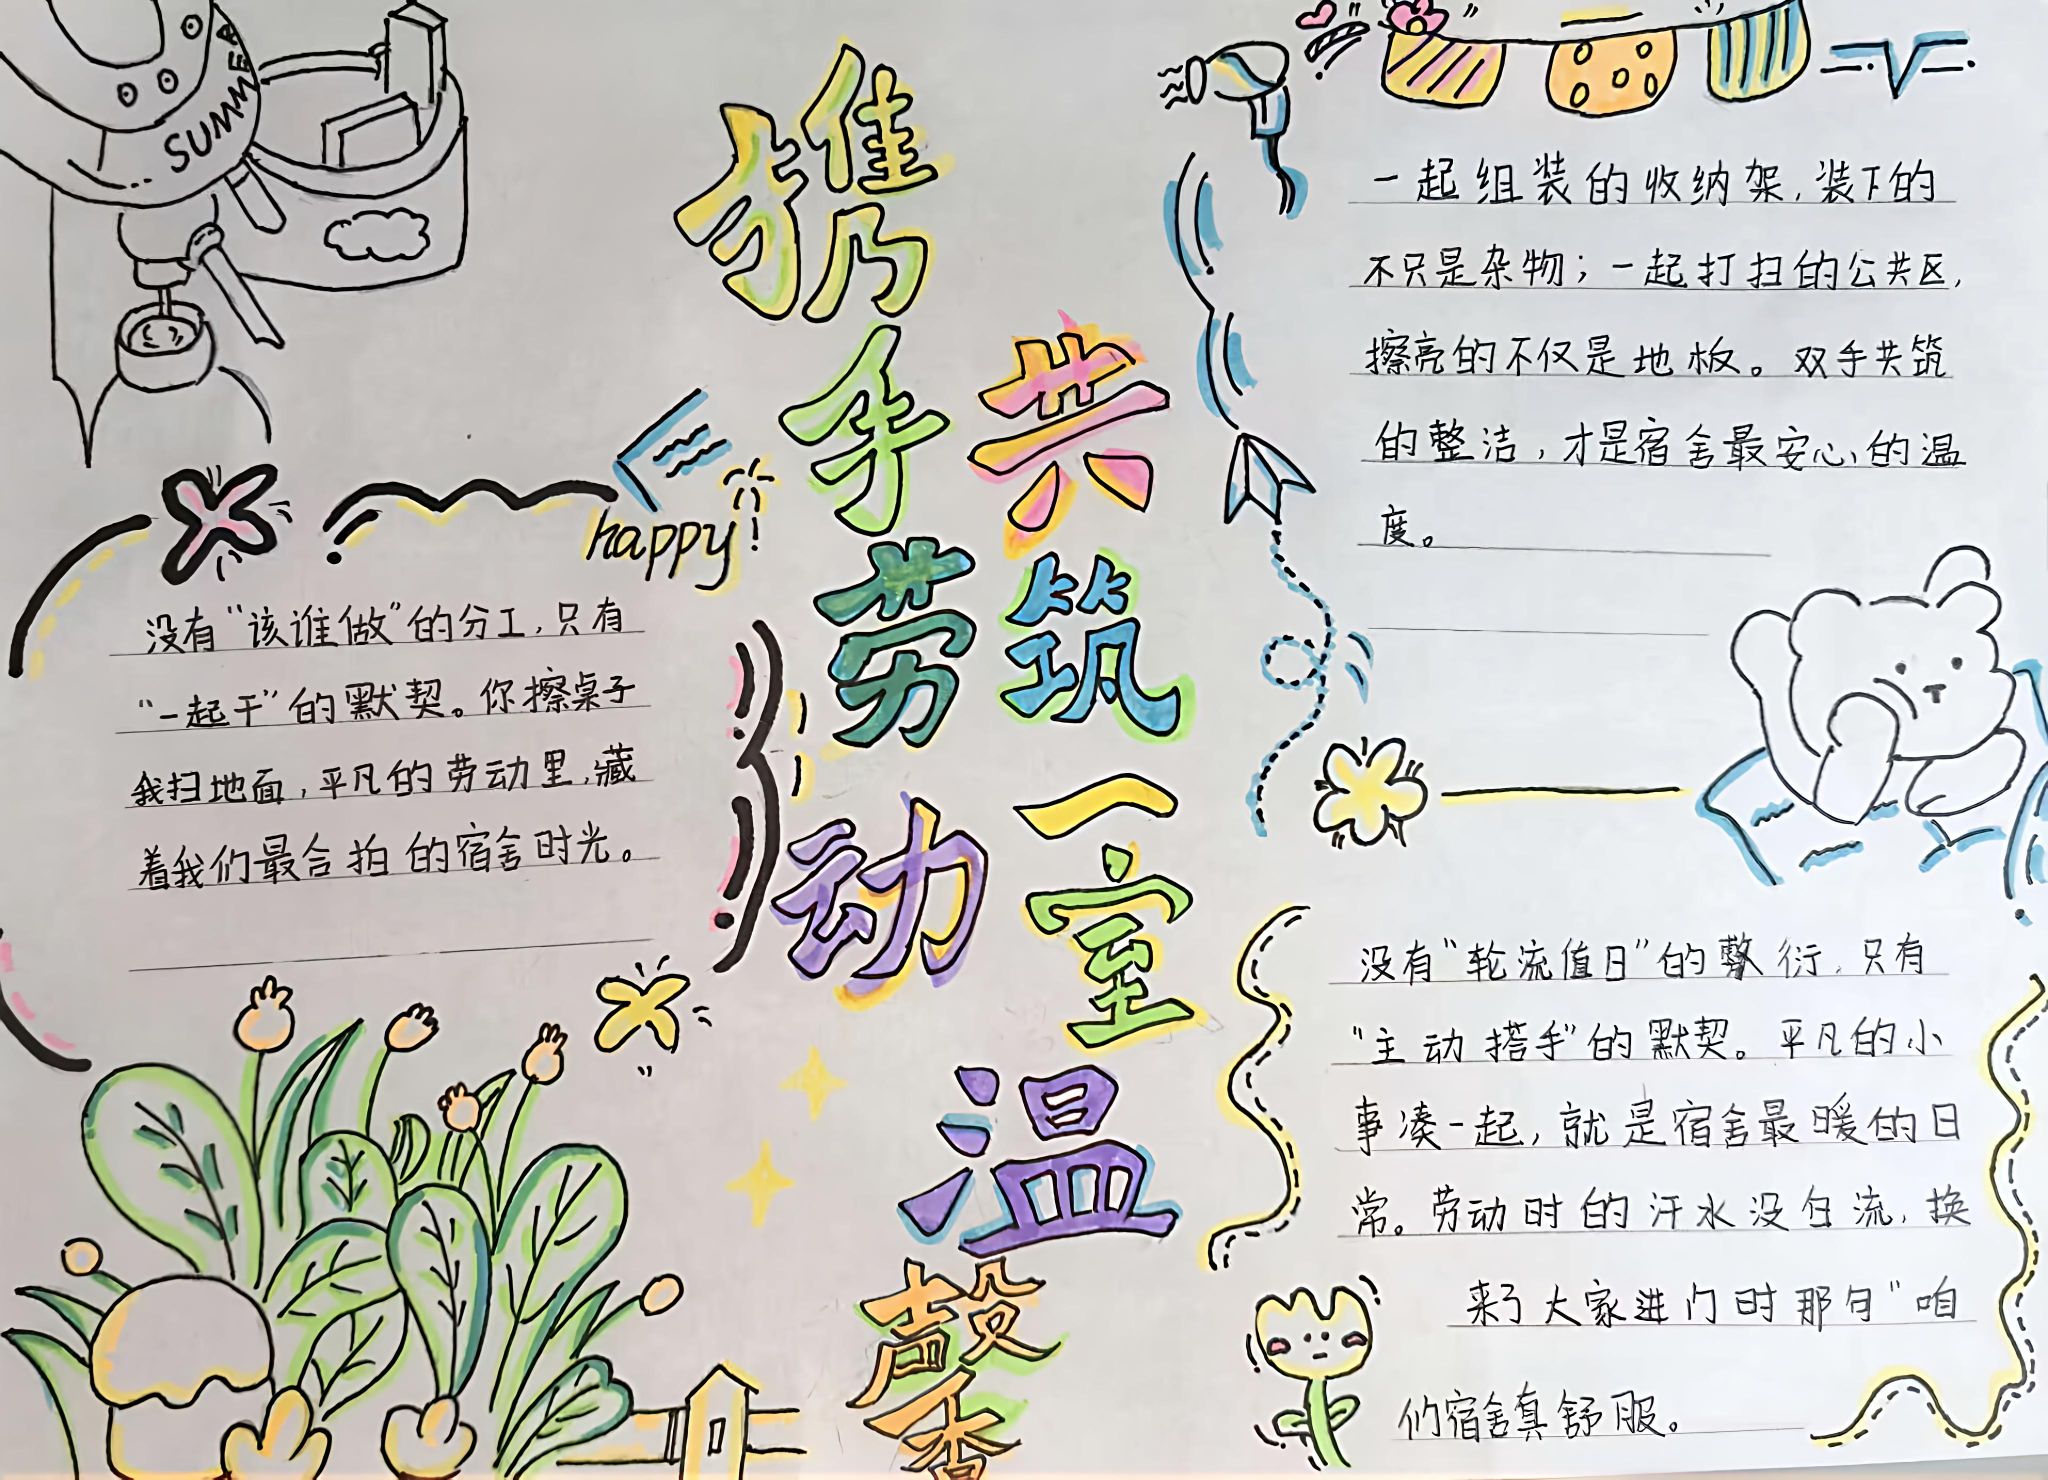 SUMMER
携手劳动
共筑一室温馨
happy!
没有“该谁做”的分工，只有
“一起干”的默契。你擦桌子
我扫地面，平凡的劳动里，藏
着我们最合拍的宿舍时光。
一起组装的收纳架，装下的
不只是杂物；一起打扫的公共区，
擦亮的不仅是地板。双手共筑
的整洁，才是宿舍最安心的温
度。
没有“轮流值日”的敷衍，只有
“主动搭手”的默契。平凡的小
事凑一起，就是宿舍最暖的日
常。劳动时的汗水没白流，换
来了大家进门时那句“咱
们宿舍真舒服。